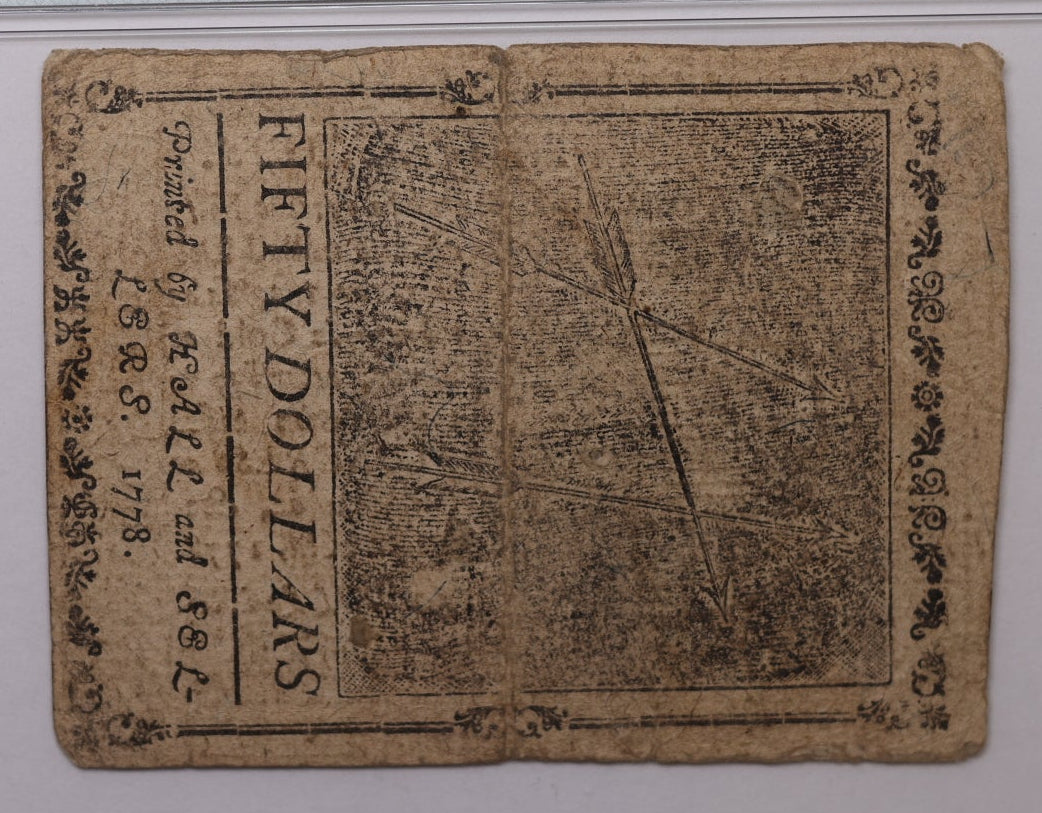 FIFTY DOLLARS
Printed by HALL and SEL-
LERS. 1778.